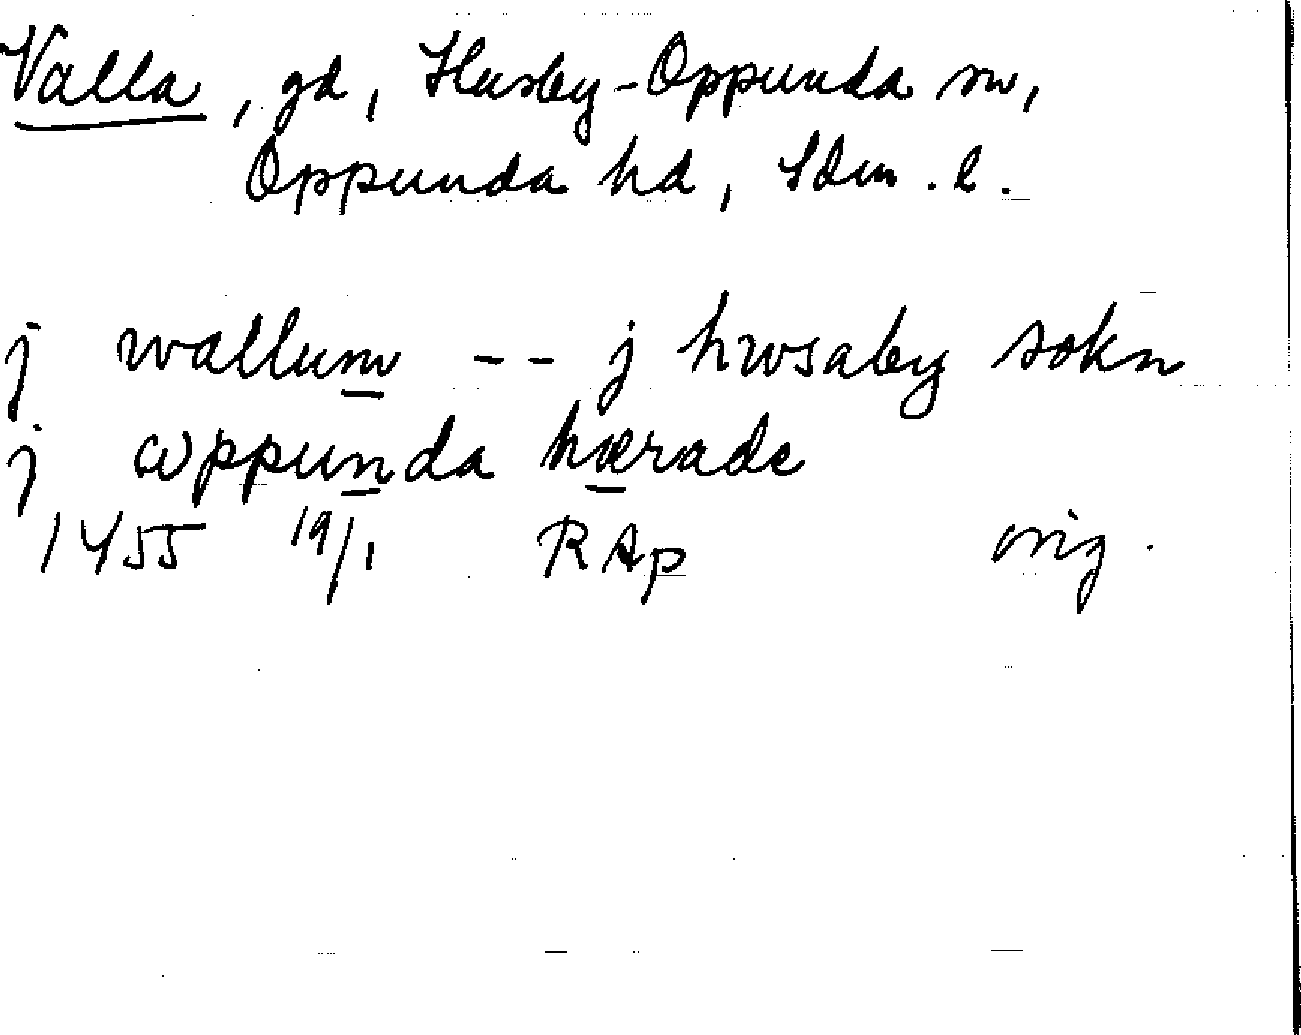 Valla, gd, Husby-Oppunda sn,
Oppunda hd, Sdm. l.
j wallum -- j hwsaby sokn
j oppunda hærade
1455 19/1 RAp orig.